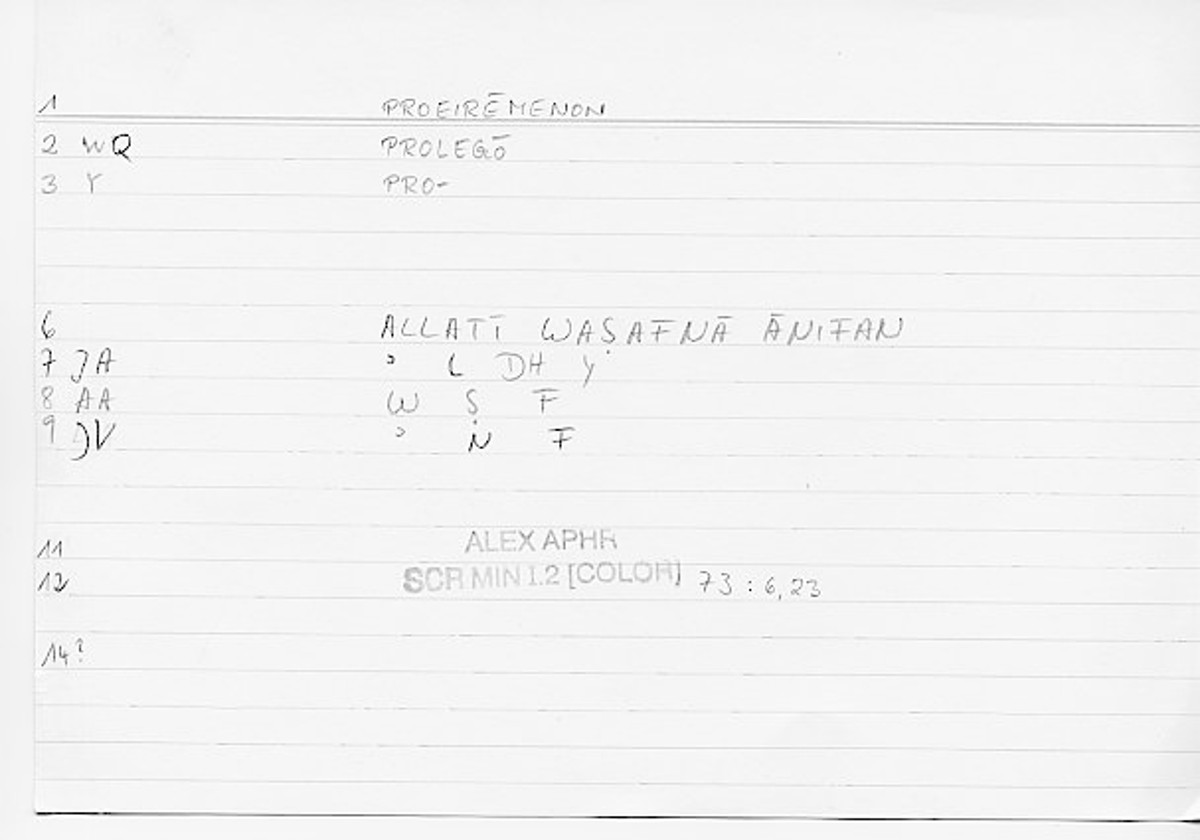 1 PROEIRĒMENON
2 WQ PROLEGŌ
3 Y PRO-
6 ALLATĪ WAṢAFNĀ ĀNIFAN
7 JA ᵓ L DH Y
8 AA W Ṣ F
9 JV ᵓ N F
11 ALEX APHR
12 SCR MIN I.2 [COLOR] 73 : 6,23
14?